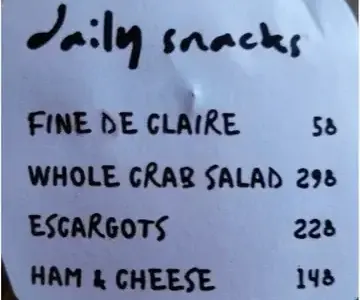 daily snacks
FINE DE CLAIRE 58
WHOLE CRAB SALAD 298
ESCARGOTS 228
HAM & CHEESE 148